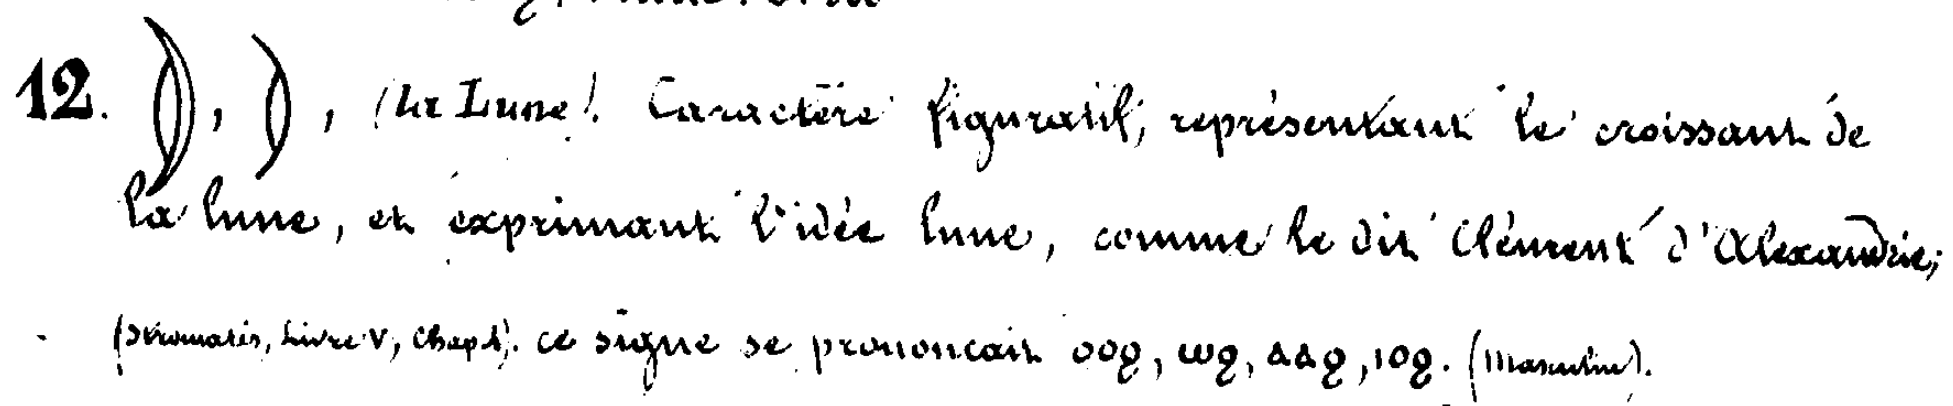 12. , , (la Lune). Caractère figuratif, représentant le croissant de
la lune, et exprimant l'idée lune, comme le dit Clément d'Alexandrie;
(Stromates, Livre V, Chap. ). ce signe se prononcait ⲟⲟϩ, ⲱϩ, ⲁⲁϩ, ⲓⲟϩ. (masculin).